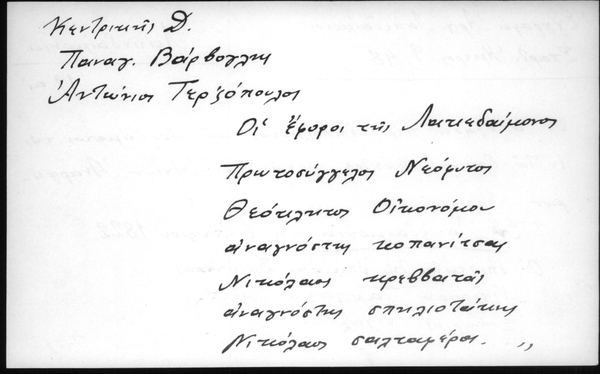 Κεντρικῆς Δ.
Παναγ. Βάρβογλης
Ἀντώνιος Τερζόπουλος
Οἱ Ἔφοροι τῆς Λακεδαίμονος
Πρωτοσύγγελος Νεόφυτος
Θεόκλητος Οἰκονόμου
ἀναγνόστης κοπανίτσας
Νικόλαος κρεββατᾶς
ἀναγνόστης σπηλιοτάκης
Νικόλαος σαλταφέρος. ,,